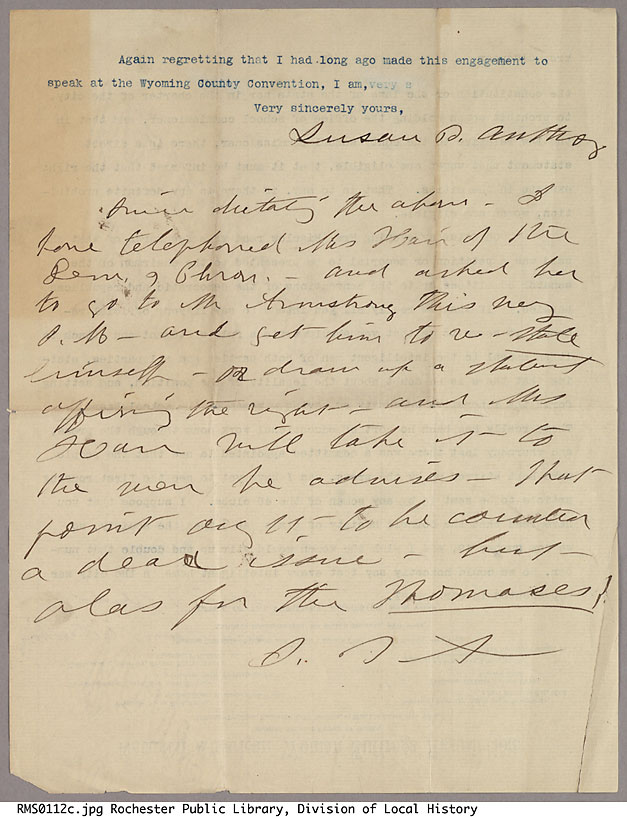 Again regretting that I had long ago made this engagement to
speak at the Wyoming County Convention, I am, very s
Very sincerely yours,
Susan B. Anthony
Since dictating the above - I
have telephoned Mrs Hair of the
Dem. & Chron. - and asked her
to go to Mr Armstrong this very
P.M - and get him to re-state
himself - or draw up a statement
affirming the right - and Mrs
Hair will take it to
the men he advises - That
point ought to be counted
a dead issue - but
alas for the Thomases!
S. B. A
RMS0112c.jpg Rochester Public Library, Division of Local History